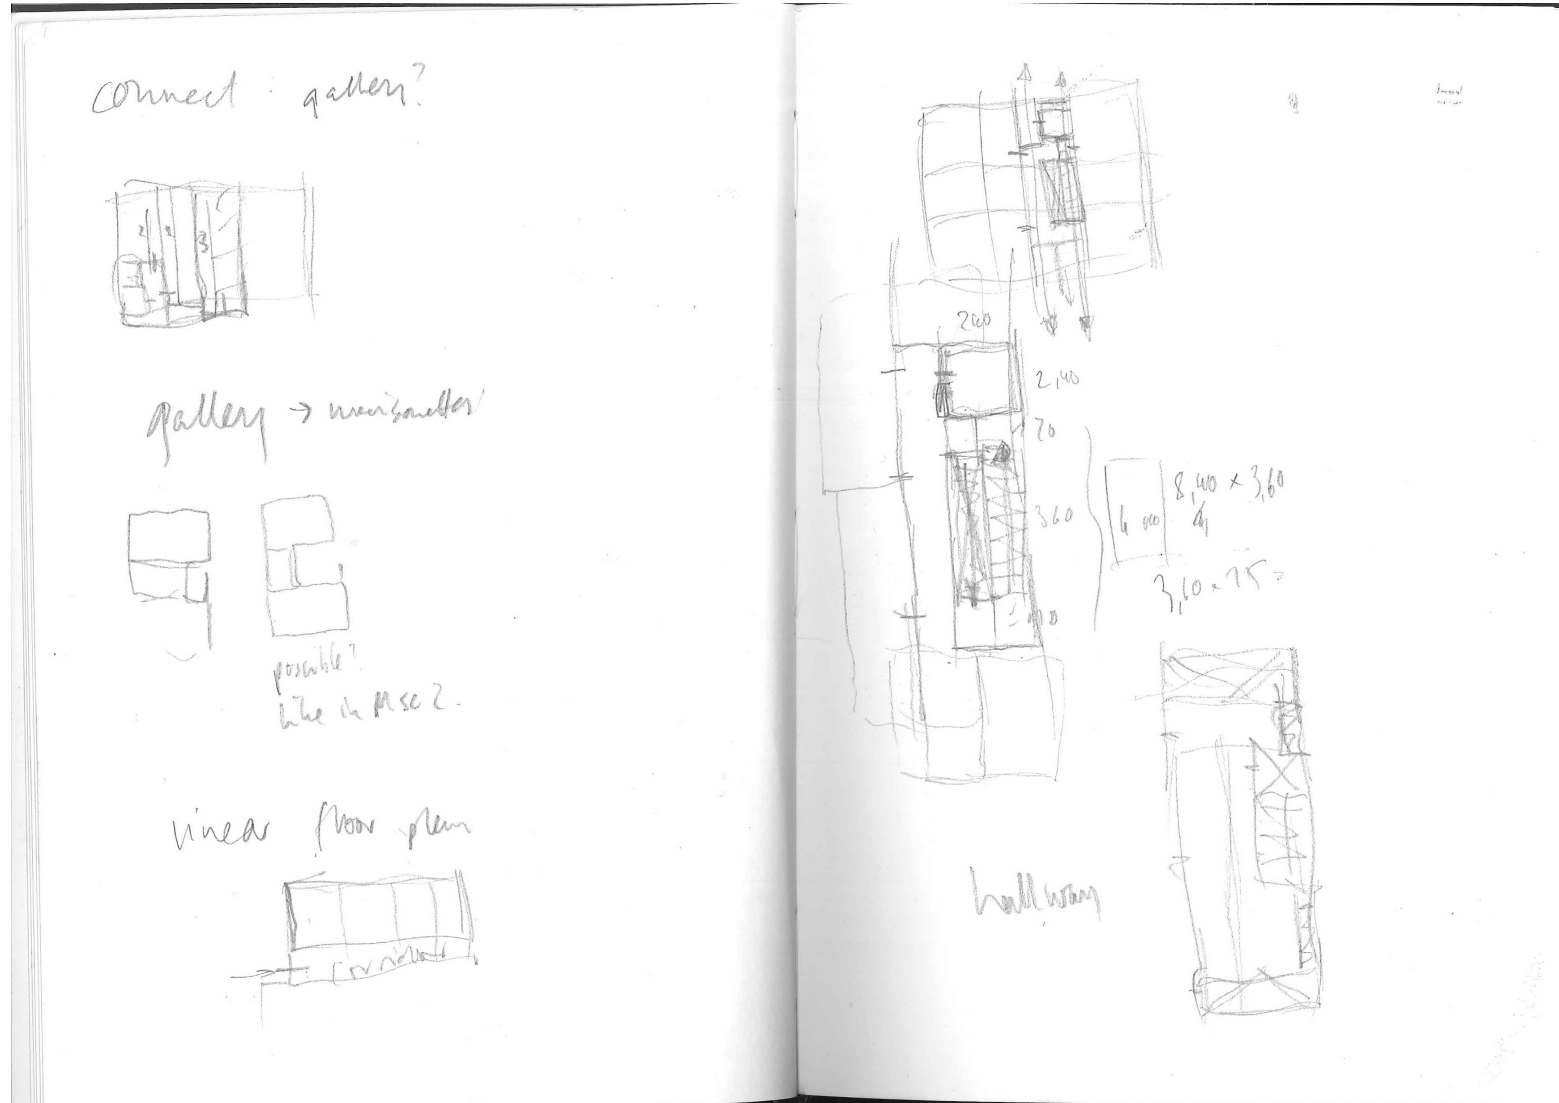 connect : gallery?
2 1 3
gallery → maisonettes
possible?
like in Msc 2.
linear floor plan
corridor
240
2,40
70
360
8,40 x 3,60
3,60 x 75 =
hallway